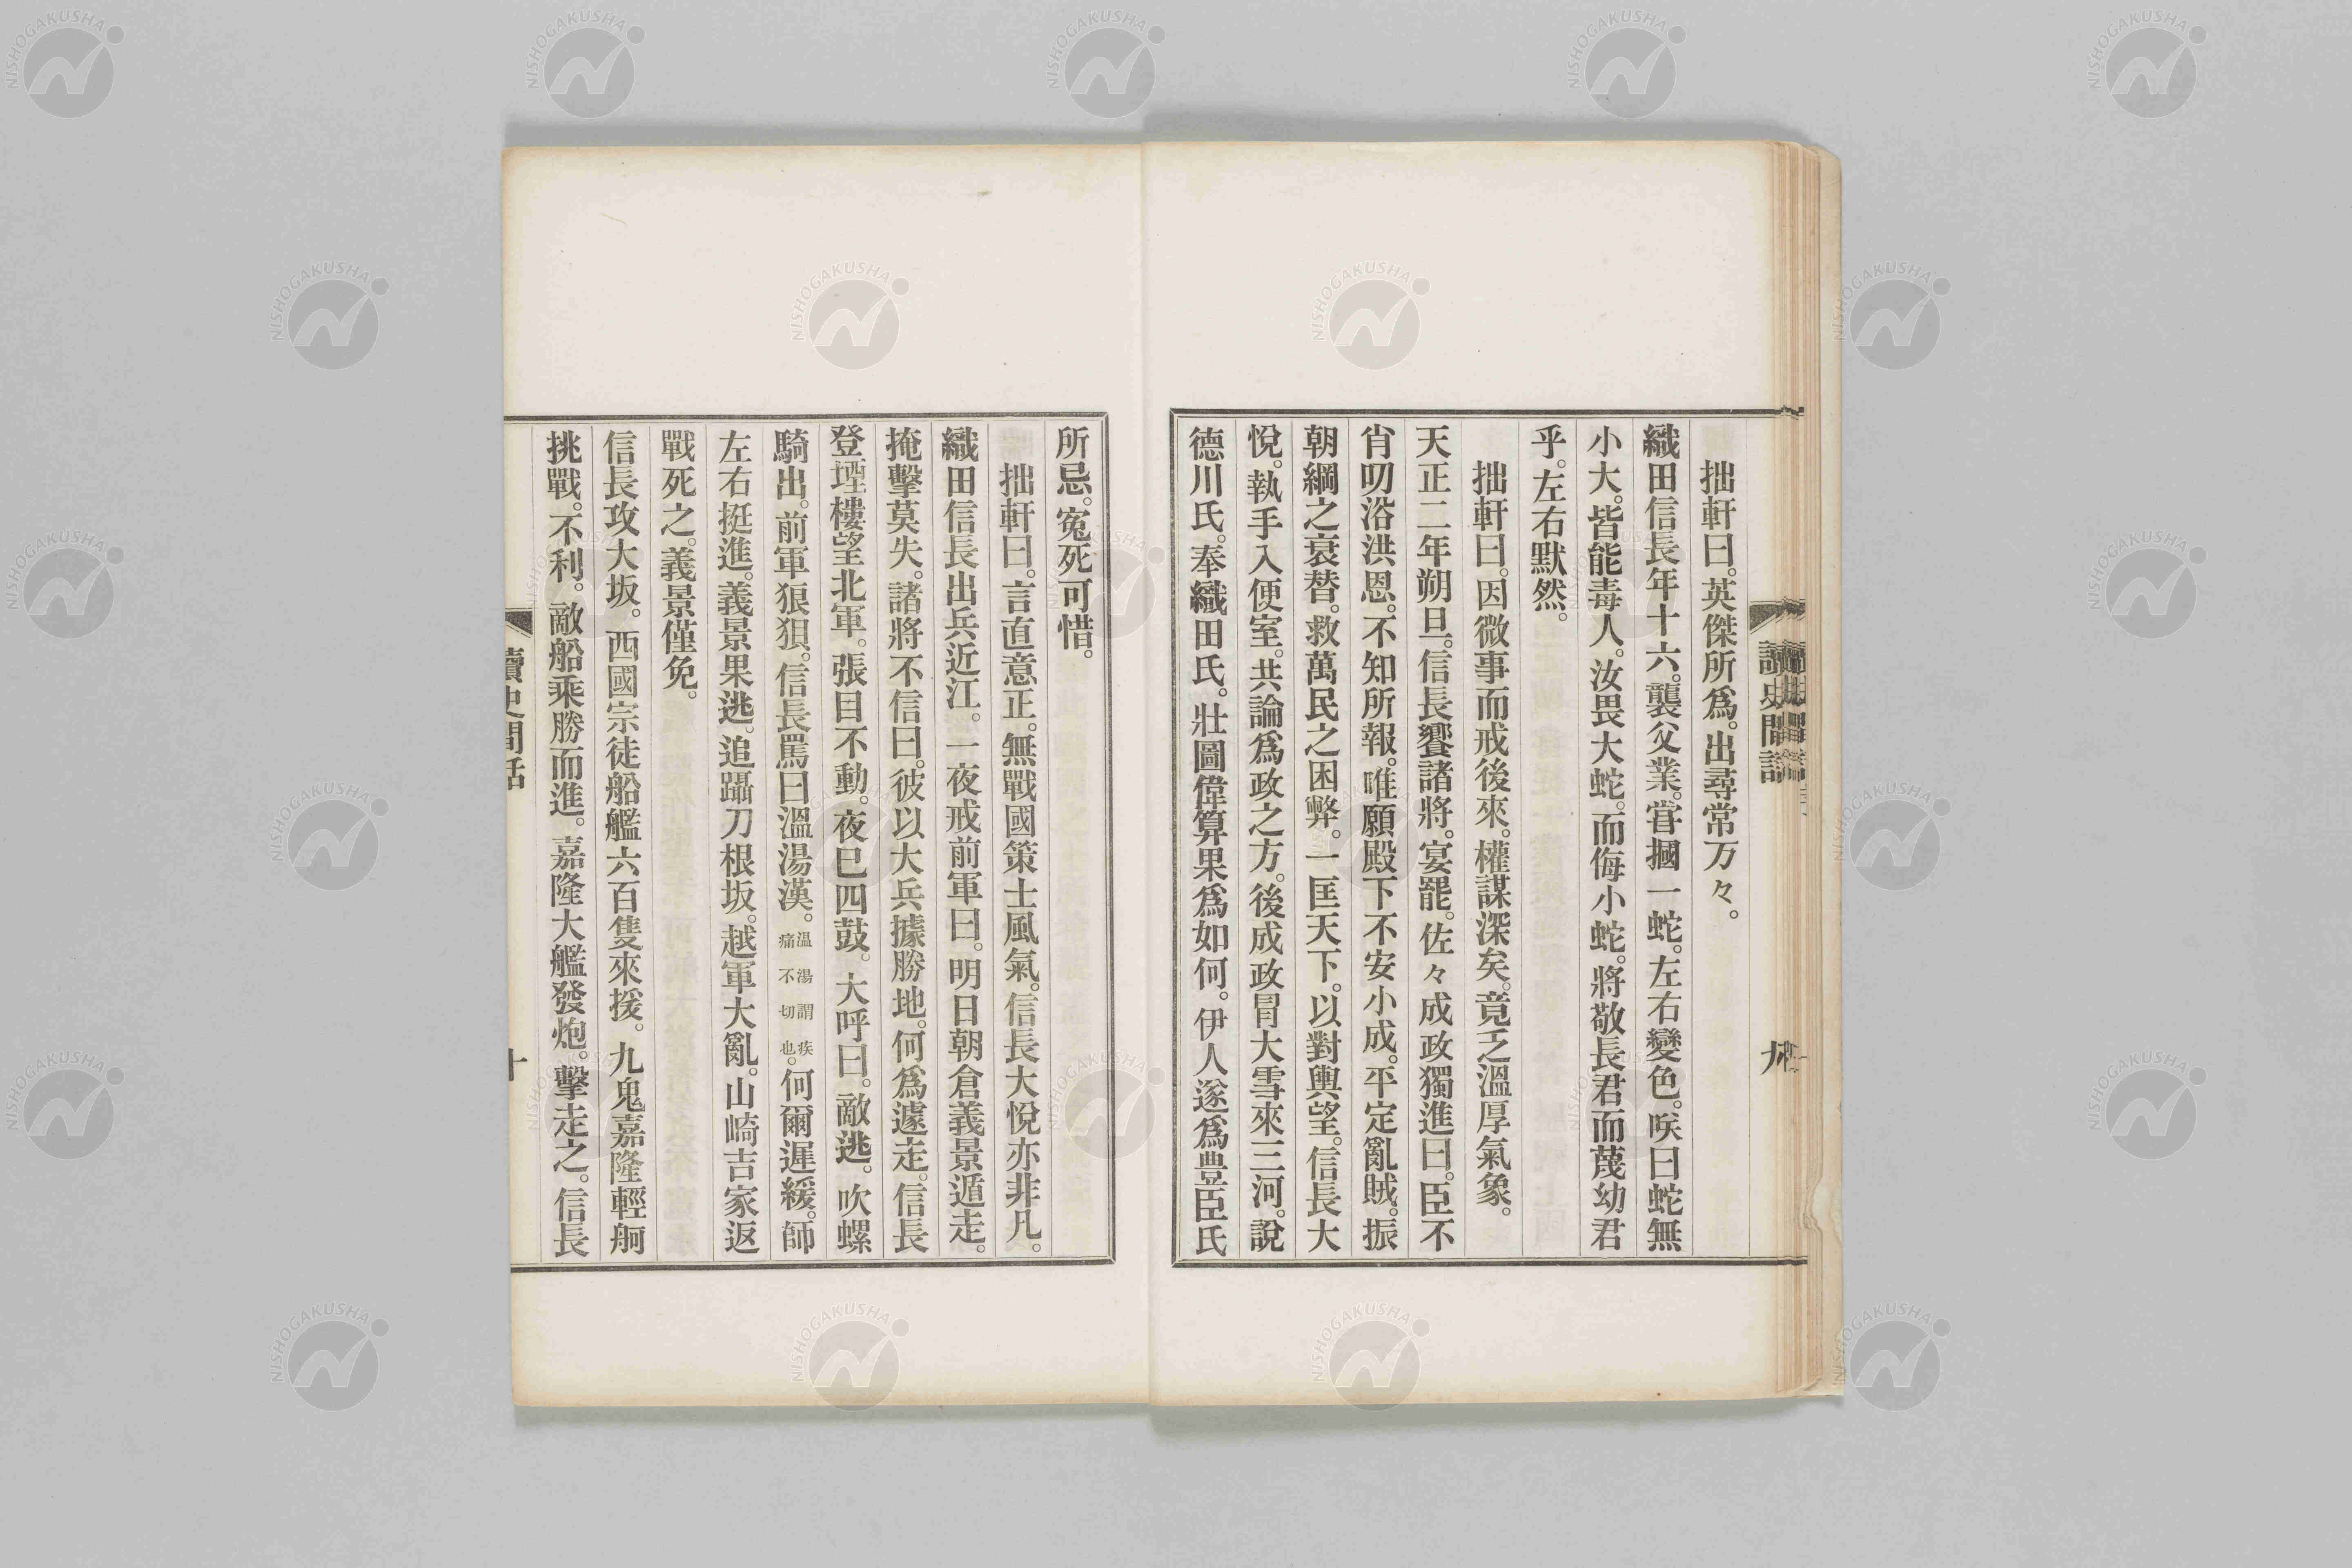 讀史閒話
九
拙軒曰。英傑所爲。出尋常万々。
織田信長年十六。襲父業。嘗摑一蛇。左右變色。咲曰蛇無
小大。皆能毒人。汝畏大蛇。而侮小蛇。將敬長君而蔑幼君
乎。左右默然。
拙軒曰。因微事而戒後來。權謀深矣。竟乏溫厚氣象。
天正二年朔旦。信長饗諸將。宴罷。佐々成政獨進曰。臣不
肖叨浴洪恩。不知所報。唯願殿下不安小成。平定亂賊。振
朝綱之衰替。救萬民之困弊。一匡天下。以對輿望。信長大
悅。執手入便室。共論爲政之方。後成政冐大雪來三河。說
德川氏。奉織田氏。壯圖偉算果爲如何。伊人遂爲豊臣氏
所忌。寃死可惜。
拙軒曰。言直意正。無戰國策士風氣。信長大悅亦非凡。
織田信長出兵近江。一夜戒前軍曰。明日朝倉義景遁走。
掩擊莫失。諸將不信曰。彼以大兵據勝地。何爲遽走。信長
登堙樓望北軍。張目不動。夜已四鼓。大呼曰。敵逃。吹螺
騎出。前軍狼狽。信長罵曰溫湯漢。溫湯謂疾痛不切也。何爾遲緩。師
左右挺進。義景果逃。追躡刀根坂。越軍大亂。山崎吉家返
戰死之。義景僅免。
信長攻大坂。西國宗徒船艦六百隻來援。九鬼嘉隆輕舸
挑戰。不利。敵船乘勝而進。嘉隆大艦發炮。擊走之。信長
讀史閒話
十
NISHOGAKUSHA